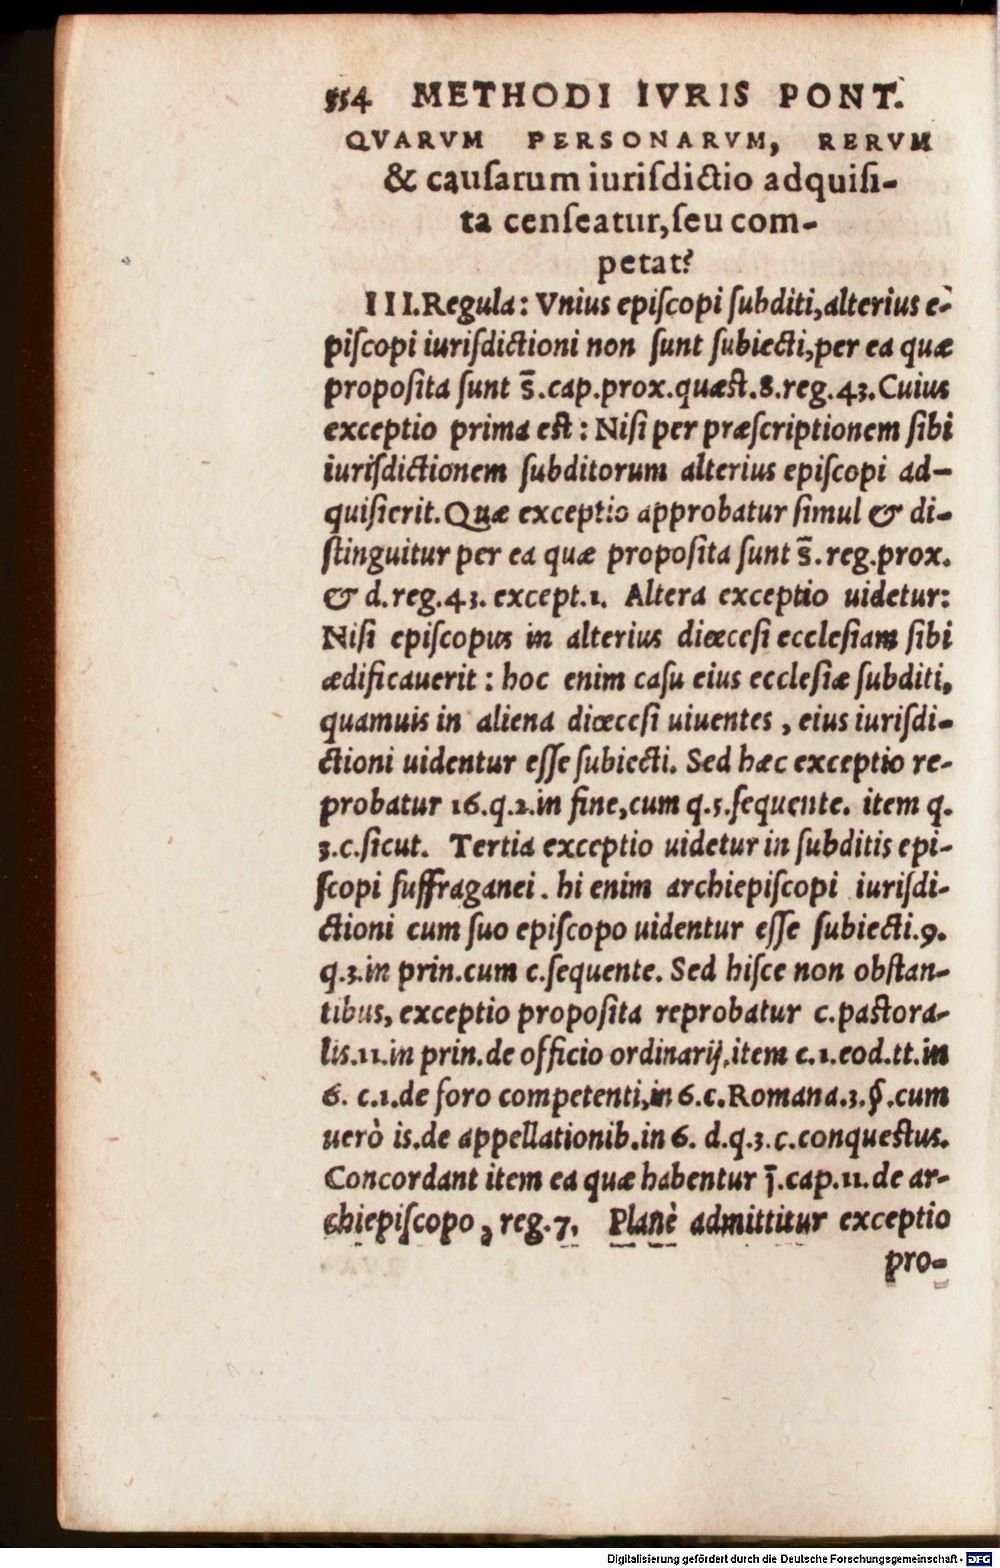 554 METHODI IVRIS PONT.
QVARVM PERSONARVM, RERVM
& cauſarum iuriſdictio adquiſi-
ta cenſeatur, ſeu com-
petat?
III. Regula: Vnius epiſcopi ſubditi, alterius e-
piſcopi iuriſdictioni non ſunt ſubiecti, per ea quæ
propoſita ſunt s̄. cap. prox. quæſt. 8. reg. 43. Cuius
exceptio prima eſt: Niſi per præſcriptionem ſibi
iuriſdictionem ſubditorum alterius epiſcopi ad-
quiſierit. Quæ exceptio approbatur ſimul & di-
ſtinguitur per ea quæ propoſita ſunt s̄. reg. prox.
& d. reg. 43. except. 1. Altera exceptio uidetur:
Niſi epiſcopus in alterius diœceſi eccleſiam ſibi
ædificauerit: hoc enim caſu eius eccleſiæ ſubditi,
quamuis in aliena diœceſi uiuentes, eius iuriſdi-
ctioni uidentur eſſe ſubiecti. Sed hæc exceptio re-
probatur 16. q. 2. in fine, cum q. 5. ſequente. item q.
3. c. ſicut. Tertia exceptio uidetur in ſubditis epi-
ſcopi ſuffraganei. hi enim archiepiſcopi iuriſdi-
ctioni cum ſuo epiſcopo uidentur eſſe ſubiecti. 9.
q. 3. in prin. cum c. ſequente. Sed hiſce non obſtan-
tibus, exceptio propoſita reprobatur c. paſtora-
lis. 11. in prin. de officio ordinarij, item c. 1. eod. tt. in
6. c. 1. de foro competenti, in 6. c. Romana. 3. §. cum
uerò is. de appellationib. in 6. d. q. 3. c. conqueſtus.
Concordant item ea quæ habentur j̄. cap. 11. de ar-
chiepiſcopo, reg. 7. Planè admittitur exceptio
pro-
Digitalisierung gefördert durch die Deutsche Forschungsgemeinschaft - DFG